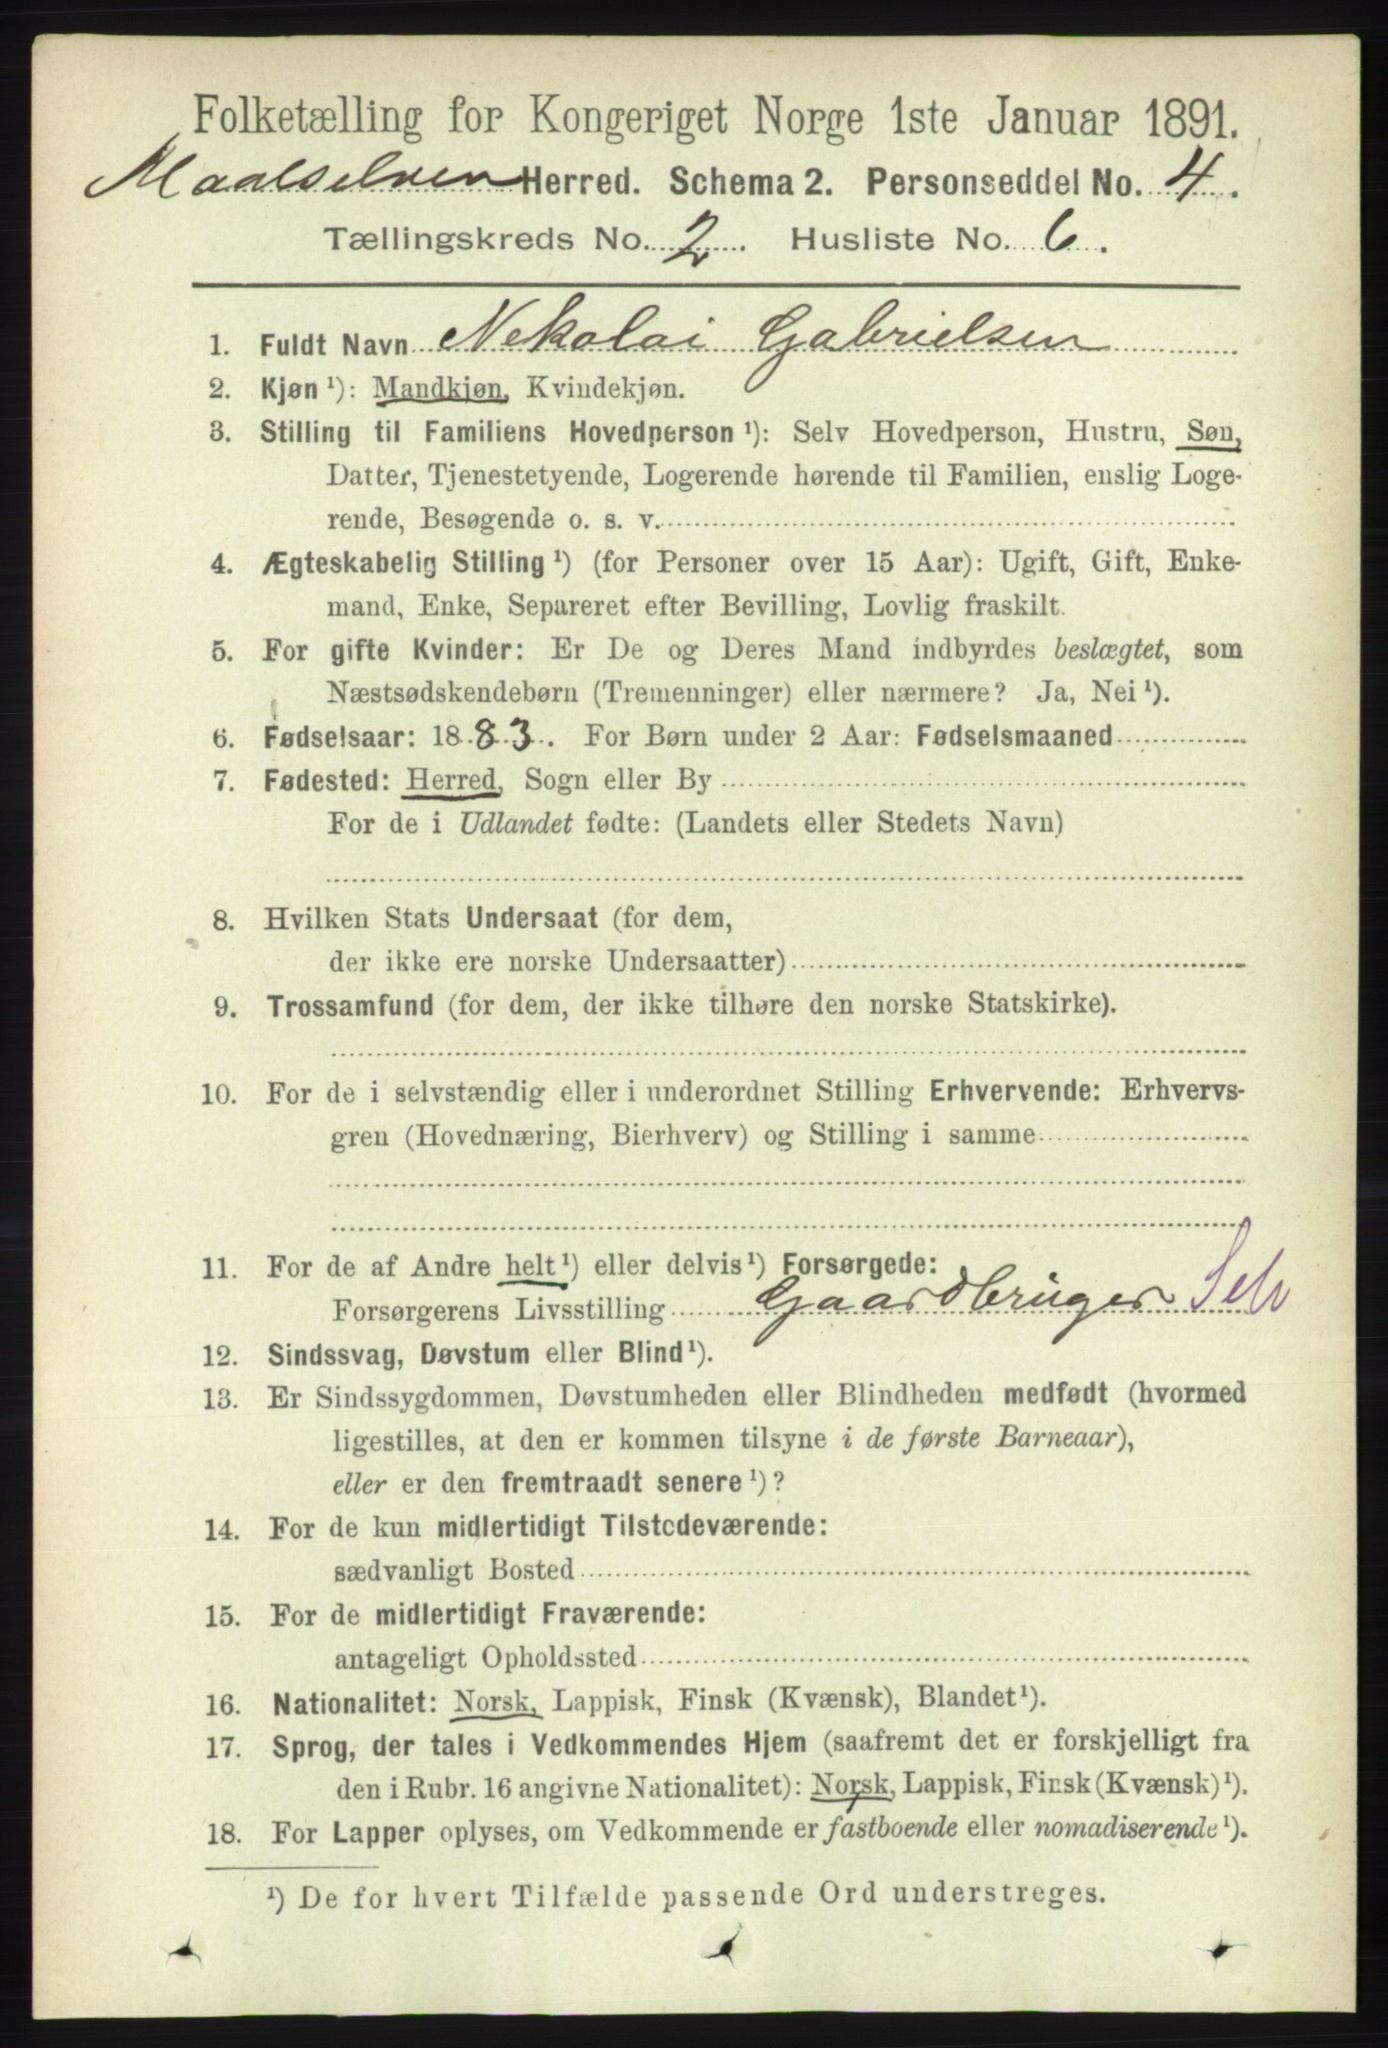 Folketælling for Kongeriget Norge 1ste Januar 1891.
Maalselven Herred. Schema 2. Personseddel No. 4.
Tællingskreds No. 2. Husliste No. 6.
1. Fuldt Navn Nekolai Gabrielsen
2. Kjøn ¹): Mandkjøn, Kvindekjøn.
3. Stilling til Familiens Hovedperson ¹): Selv Hovedperson, Hustru, Søn,
Datter, Tjenestetyende, Logerende hørende til Familien, enslig Loge-
rende, Besøgende o. s. v.
4. Ægteskabelig Stilling ¹) (for Personer over 15 Aar): Ugift, Gift, Enke-
mand, Enke, Separeret efter Bevilling, Lovlig fraskilt.
5. For gifte Kvinder: Er De og Deres Mand indbyrdes beslægtet, som
Næstsødskendebørn (Tremenninger) eller nærmere? Ja, Nei ¹).
6. Fødselsaar: 1883. For Børn under 2 Aar: Fødselsmaaned
7. Fødested: Herred, Sogn eller By
For de i Udlandet fødte: (Landets eller Stedets Navn)
8. Hvilken Stats Undersaat (for dem,
der ikke ere norske Undersaatter)
9. Trossamfund (for dem, der ikke tilhøre den norske Statskirke).
10. For de i selvstændig eller i underordnet Stilling Erhvervende: Erhvervs-
gren (Hovednæring, Bierhverv) og Stilling i samme
11. For de af Andre helt ¹) eller delvis ¹) Forsørgede:
Forsørgerens Livsstilling Gaardbruger Selv
12. Sindssvag, Døvstum eller Blind ¹).
13. Er Sindssygdommen, Døvstumheden eller Blindheden medfødt (hvormed
ligestilles, at den er kommen tilsyne i de første Barneaar),
eller er den fremtraadt senere ¹)?
14. For de kun midlertidigt Tilstedeværende:
sædvanligt Bosted
15. For de midlertidigt Fraværende:
antageligt Opholdssted
16. Nationalitet: Norsk, Lappisk, Finsk (Kvænsk), Blandet ¹).
17. Sprog, der tales i Vedkommendes Hjem (saafremt det er forskjelligt fra
den i Rubr. 16 angivne Nationalitet): Norsk, Lappisk, Finsk (Kvænsk) ¹).
18. For Lapper oplyses, om Vedkommende er fastboende eller nomadiserende ¹).
¹) De for hvert Tilfælde passende Ord understreges.